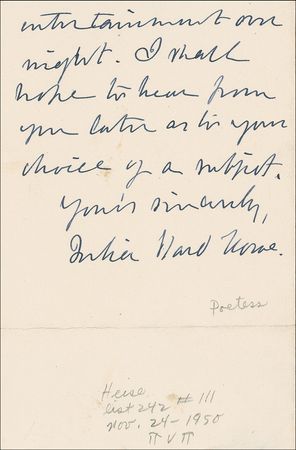 entertainment over
night. I shall
hope to hear from
you later as to your
choice of a subject.
Yours sincerely,
Julia Ward Howe.
Poetess
Heise
list 242 # 111
Nov. 24 - 1950